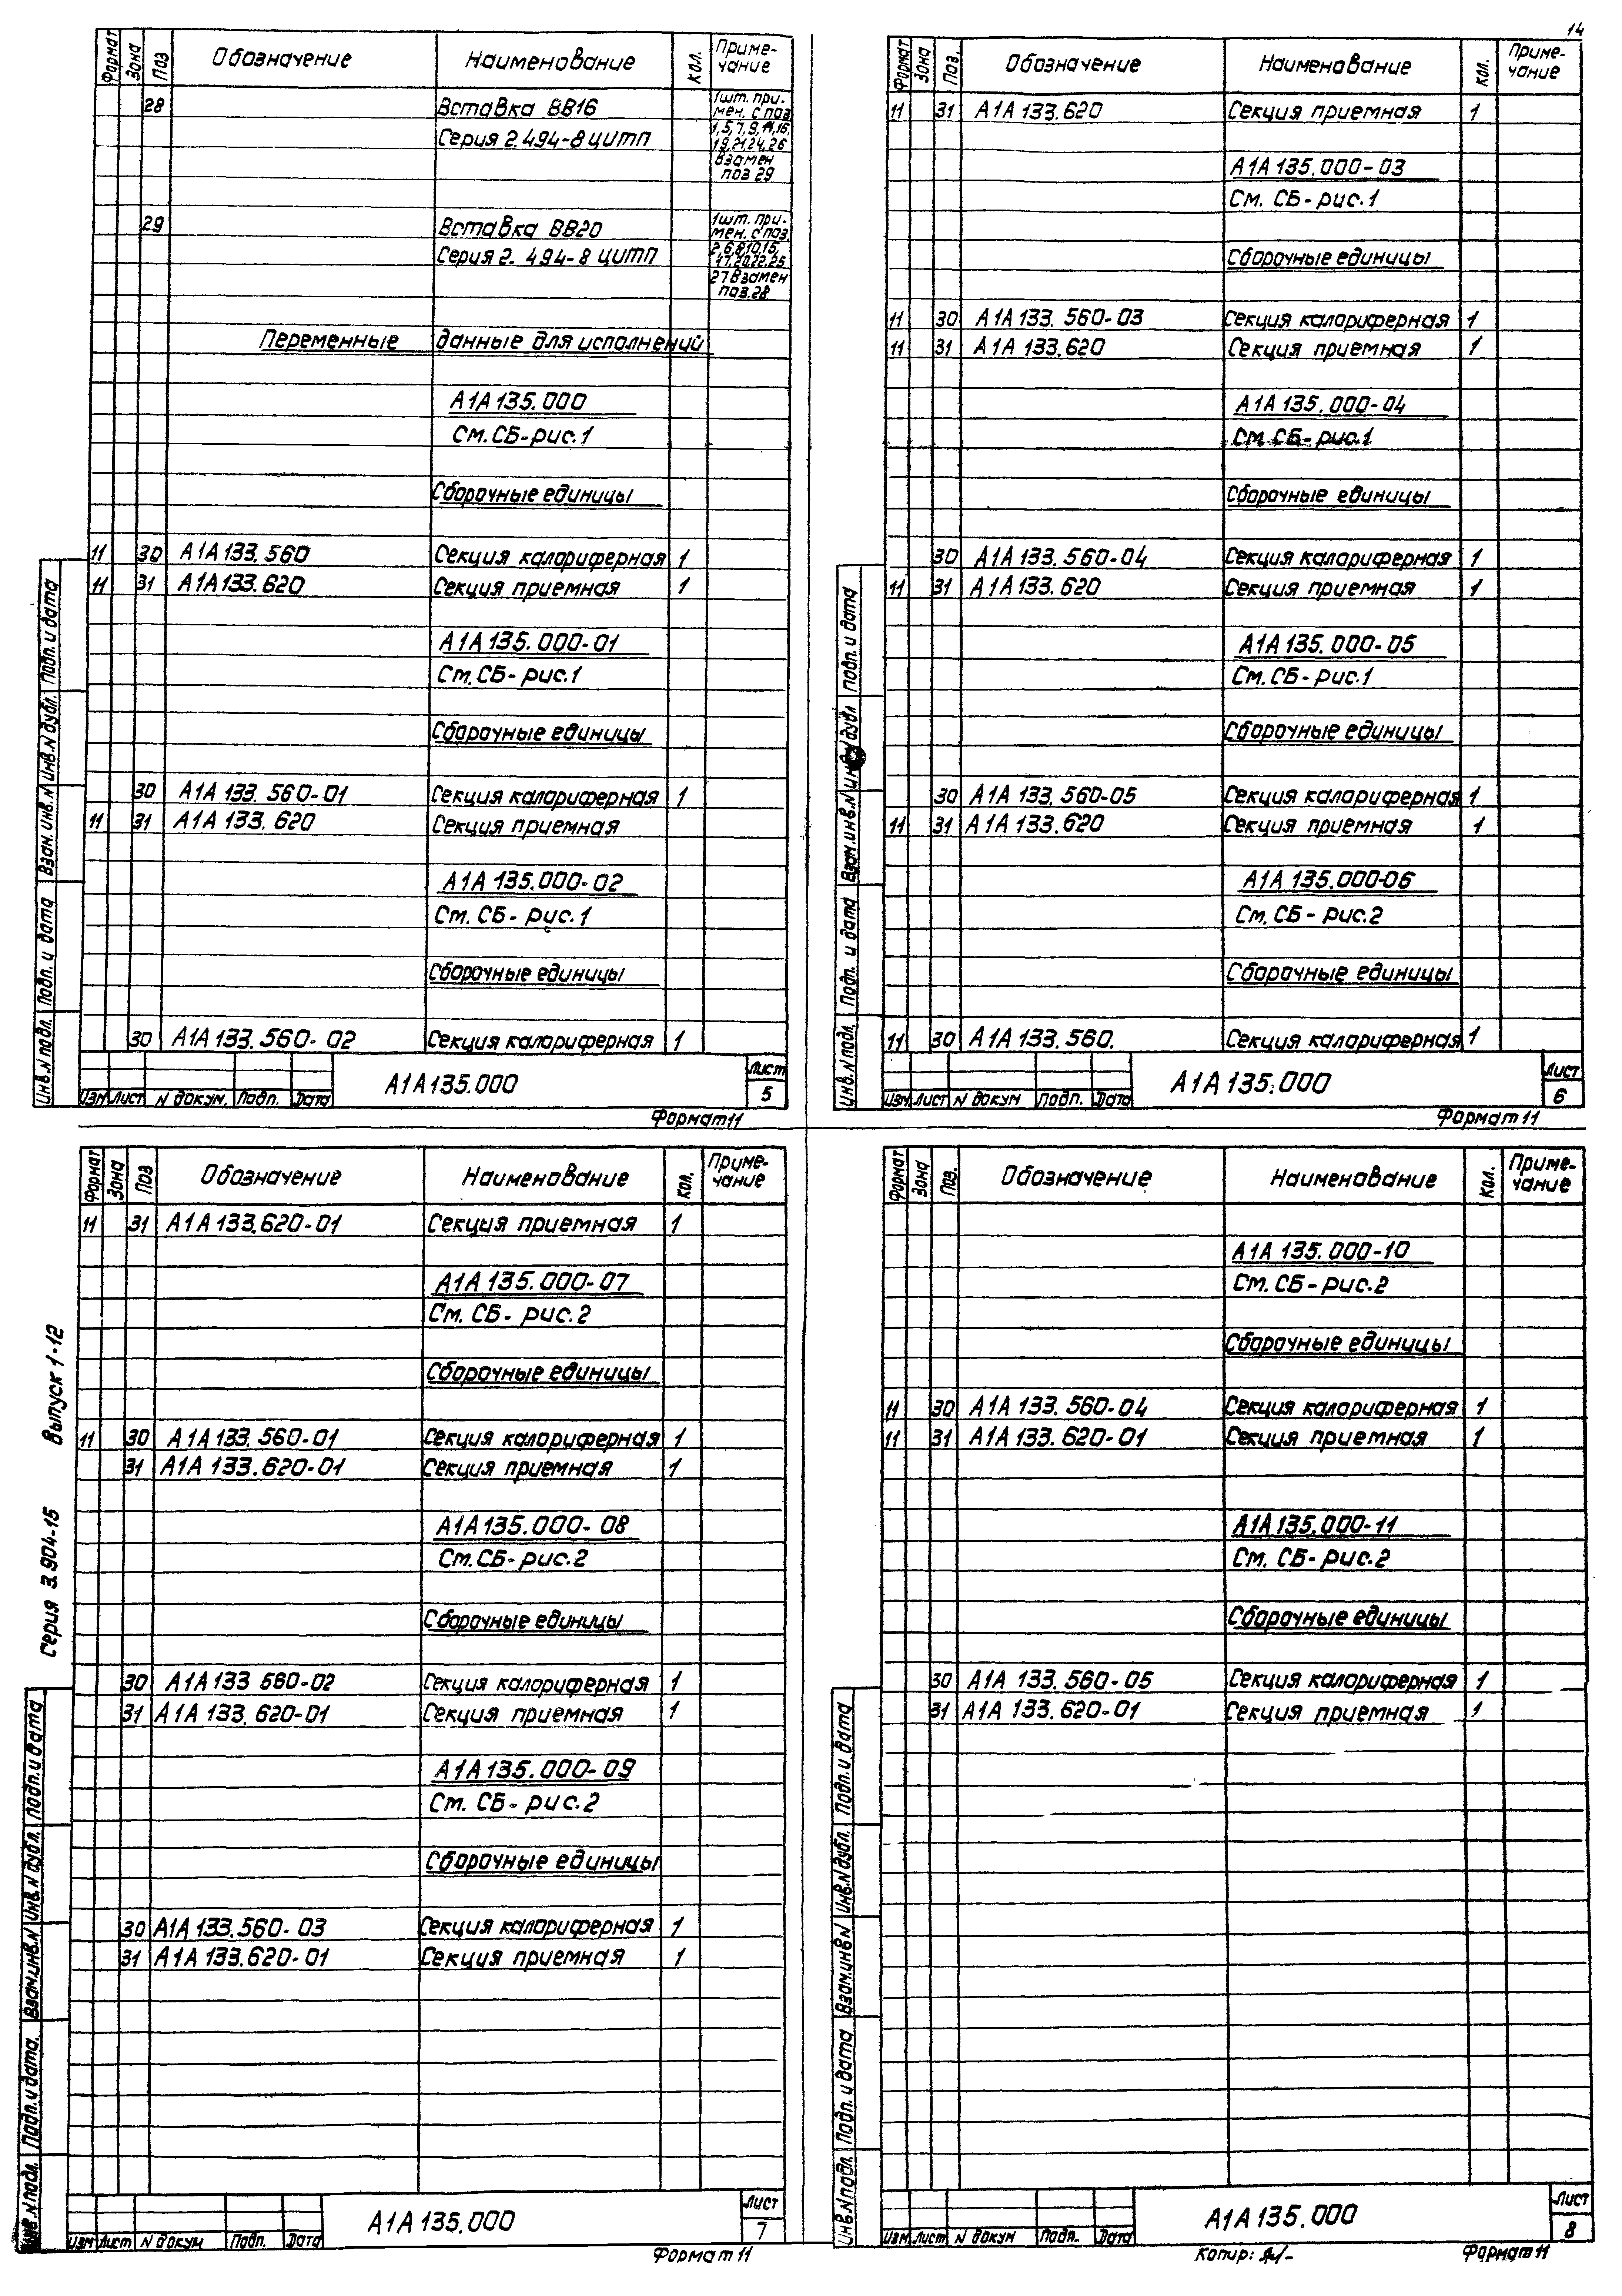 14
Формат Зона Поз Обозначение Наименование Кол. Приме-
чание
28 Вставка ВВ16 1шт. при-
мен. с поз
Серия 2.494-8 ЦИТП 1,5,7,9,11,16,
19,21,24,26
Взамен
поз 29
29 Вставка ВВ20 1шт. при-
мен. с поз.
Серия 2. 494-8 ЦИТП 2,6,8,10,15,
17,20,22,25
27 Взамен
поз.28
Переменные данные для исполнений
А1А135.000
См.СБ-рис.1
Сборочные единицы
11 30 А1А133.560 Секция калориферная 1
11 31 А1А133.620 Секция приемная 1
А1А135.000-01
См.СБ-рис.1
Сборочные единицы
30 А1А 133.560-01 Секция калориферная 1
11 31 А1А 133.620 Секция приемная
А1А 135.000-02
См.СБ-рис.1
Сборочные единицы
30 А1А133.560-02 Секция калориферная 1
Инв.N подл. Подп. и дата Взам.инв.N Инв.N дубл. Подп. и дата
Изм Лист N докум. Подп. Дата
А1А135.000
Лист
5
Формат11
Формат Зона Поз. Обозначение Наименование Кол. Приме-
чание
11 31 А1А 133.620 Секция приемная 1
А1А 135.000-03
См. СБ-рис.1
Сборочные единицы
11 30 А1А 133.560-03 Секция калориферная 1
11 31 А1А 133.620 Секция приемная 1
А1А 135.000-04
См СБ-рис.1
Сборочные единицы
30 А1А133.560-04 Секция калориферная 1
11 31 А1А133.620 Секция приемная 1
А1А 135.000-05
См.СБ-рис.1
Сборочные единицы
30 А1А 133.560-05 Секция калориферная 1
11 31 А1А 133.620 Секция приемная 1
А1А 135.000-06
См. СБ-рис.2
Сборочные единицы
11 30 А1А 133.560. Секция калориферная 1
Инв.N подл. Подп. и дата Взам.инв.N дубл Подп. и дата
Изм Лист N докум Подп. Дата
А1А135.000
Лист
6
Формат11
Формат Зона Поз Обозначение Наименование Кол. Приме-
чание
11 31 А1А133.620-01 Секция приемная 1
А1А 135.000-07
См. СБ-рис.2
Сборочные единицы
11 30 А1А 133.560-01 Секция калориферная 1
31 А1А 133.620-01 Секция приемная 1
А1А135.000-08
См.СБ-рис.2
Сборочные единицы
30 А1А133 560-02 Секция калориферная 1
31 А1А 133.620-01 Секция приемная 1
А1А135.000-09
См. СБ-рис.2
Сборочные единицы
30 А1А 133.560-03 Секция калориферная 1
31 А1А 133.620-01 Секция приемная 1
Серия 3.904-15 Выпуск 1-12
Инв.N подл. Подп. и дата. Взам.инв.N Инв.N дубл. Подп. и дата
Изм Лист N докум Подп. Дата
А1А135.000
Лист
7
Формат 11
Формат Зона Поз. Обозначение Наименование Кол. Приме-
чание
А1А 135.000-10
См. СБ-рис.2
Сборочные единицы
11 30 А1А 133.560-04 Секция калориферная 1
11 31 А1А 133.620-01 Секция приемная 1
А1А135.000-11
См. СБ-рис.2
Сборочные единицы
30 А1А 133.560-05 Секция калориферная 1
31 А1А 133.620-01 Секция приемная 1
Инв.N подл. Подп. и дата Взам.инв.N Инв.N дубл. Подп. и дата
Изм Лист N докум Подп. Дата
А1А135.000
Лист
8
Копир: Формат11